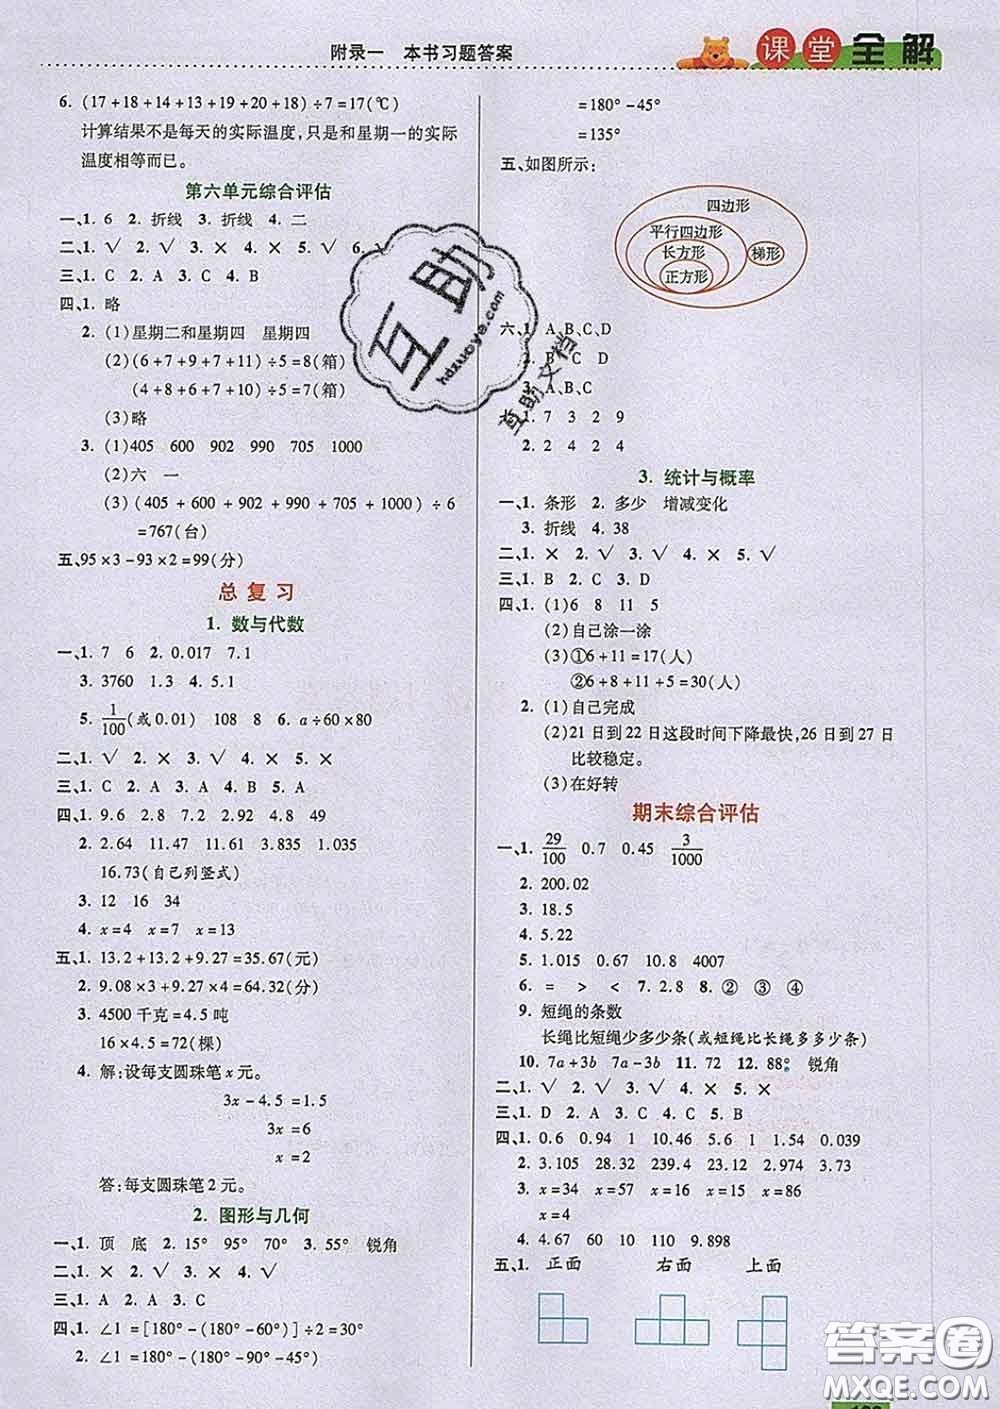 附录一 本书习题答案
课堂全解
6. (17+18+14+13+19+20+18)÷7=17(℃)
计算结果不是每天的实际温度,只是和星期一的实际
温度相等而已。
第六单元综合评估
一、1. 6 2. 折线 3. 折线 4. 二
二、1. √ 2. √ 3. × 4. × 5. √ 6. √
三、1. C 2. A 3. C 4. B
四、1. 略
2. (1)星期二和星期四 星期四
(2)(6+7+9+7+11)÷5=8(箱)
(4+8+6+7+10)÷5=7(箱)
(3)略
3. (1)405 600 902 990 705 1000
(2)六 一
(3)(405+600+902+990+705+1000)÷6
=767(台)
五、95×3-93×2=99(分)
总复习
1. 数与代数
一、1. 7 6 2. 0.017 7.1
3. 3760 1.3 4. 5.1
5. 1/100(或0.01) 108 8 6. a÷60×80
二、1. √ 2. × 3. √ 4. × 5. ×
三、1. C 2. A 3. A 4. B 5. A
四、1. 9.6 2.8 7.2 4.8 8.4 49
2. 2.64 11.47 11.61 3.835 1.035
16.73(自己列竖式)
3. 12 16 34
4. x=4 x=7 x=13
五、1. 13.2+13.2+9.27=35.67(元)
2. 9.08×3+9.27×4=64.32(分)
3. 4500千克=4.5吨
16×4.5=72(棵)
4. 解:设每支圆珠笔x元。
3x-4.5=1.5
3x=6
x=2
答:每支圆珠笔2元。
2. 图形与几何
一、1. 顶 底 2. 15° 95° 70° 3. 55° 锐角
二、1. × 2. √ 3. × 4. √
三、1. A 2. A 3. C
四、1. ∠1=[180°-(180°-60°)]÷2=30°
2. ∠1=180°-(180°-90°-45°)
=180°-45°
=135°
五、如图所示:
四边形
平行四边形
长方形
正方形
梯形
六、1. A、B、C、D
2. B C D
3. A、B、C
1. 7 3 2 9
2. 2 4 2 4
3. 统计与概率
一、1. 条形 2. 多少 增减变化
3. 折线 4. 38
二、1. × 2. √ 3. √ 4. × 5. √
三、1. B 2. C 3. D
四、1. (1)6 8 11 5
(2)自己涂一涂
(3)①6+11=17(人)
②6+8+11+5=30(人)
2. (1)自己完成
(2)21日到22日这段时间下降最快,26日到27日
比较稳定。
(3)在好转
期末综合评估
一、1. 29/100 0.7 0.45 3/1000
2. 200.02
3. 18.5
4. 5.22
5. 1.015 0.67 10.8 4007
6. = > < 7. 2.8 8. ② ③ ④
9. 短绳的条数
长绳比短绳少多少条(或短绳比长绳多多少条)
10. 7a+3b 7a-3b 11. 72 12. 88° 锐角
二、1. √ 2. √ 3. √ 4. × 5. ×
三、1. D 2. A 3. C 4. C 5. B
四、1. 0.6 0.94 1 10.46 5.6 1 1.54 0.039
2. 3.105 28.32 239.4 23.12 2.974 13.86
3. x=34 x=57 x=16 x=15 x=86
x=4
4. 4.67 60 10 110 9.898
五、1. 正面 右面 上面
互助
hdzuoye.com
互助文档
答案圈
MXQE.COM